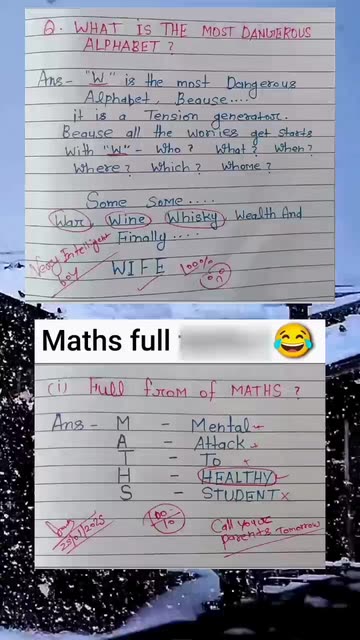 Q. WHAT IS THE MOST DANGEROUS
ALPHABET ?
Ans - "W" is the most Dangerous
Alphabet, Beause....
it is a Tension generator.
Beause all the worries get starts
with "W" - Who? What? When?
Where? Which? Whome?
Some Some....
War, Wine, Whisky, Wealth And
Finally....
Very Intelligent
boy
WIFE
100%
Maths full
(i) Full from of MATHS ?
Ans - M - Mental
A - Attack
T - To
H - HEALTHY
S - STUDENT
25/01/2025
Call your
parents Tomorrow